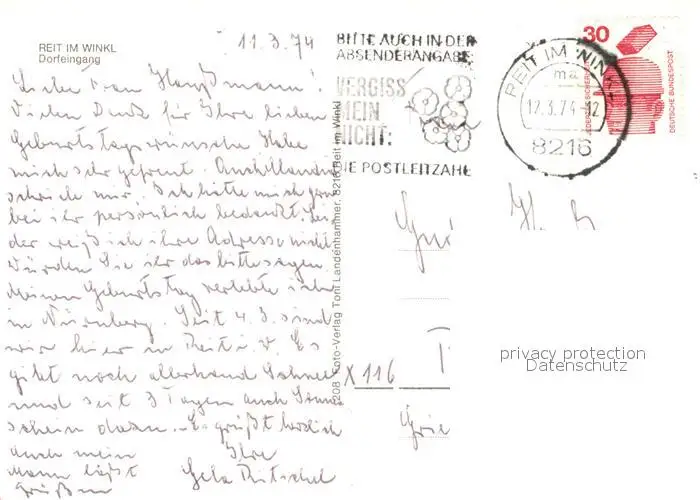 REIT IM WINKL
Dorfeingang
11.3.74
Liebe Frau
Vielen Dank für Ihre lieben
Geburtstagswünsche Habe
mich sehr gefreut.
schrieb mir. Ich hätte mich gern
bei ihr persönlich bedankt Lei-
der weiß ich ihre Adresse nicht
Würden Sie ihr das bitte sagen
Meinen Geburtstag verlebte ich
in Nürnberg. Seit 4.3. sind
wir hier in Reit i. W. Es
gibt noch allerhand Schnee
und seit 3 Tagen auch Sonnen
schein dazu. Es grüßt herzlich
auch mein Ihre
Mann läßt
grüßen
8208 Foto-Verlag Toni Landenhammer, 8216 Reit im Winkl
BITTE AUCH IN DER
ABSENDERANGABE:
VERGISS
MEIN
NICHT:
DIE POSTLEITZAHL
REIT IM WINKL
ma
12.3.74-12
8216
30
DEUTSCHE BUNDESPOST
X 116
privacy protection
Datenschutz